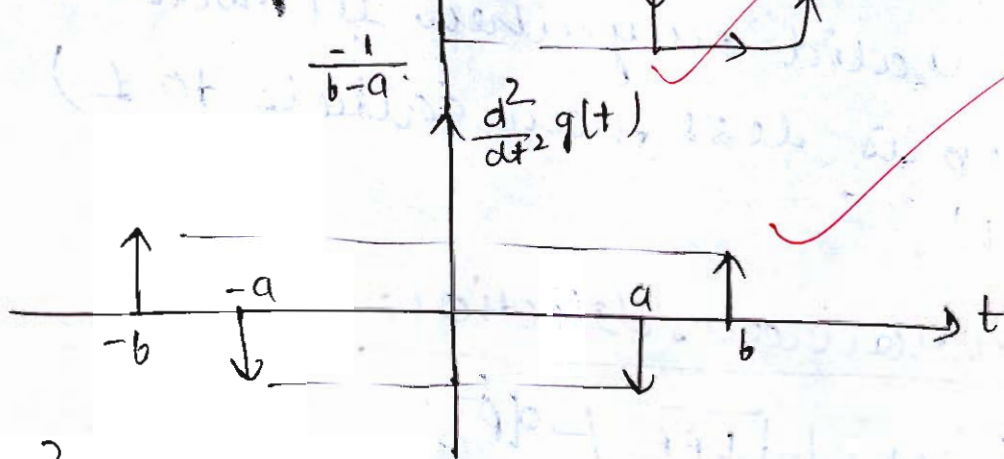 -1/(b-a)
d²/dt² g(t)
-a a
-b b t
2